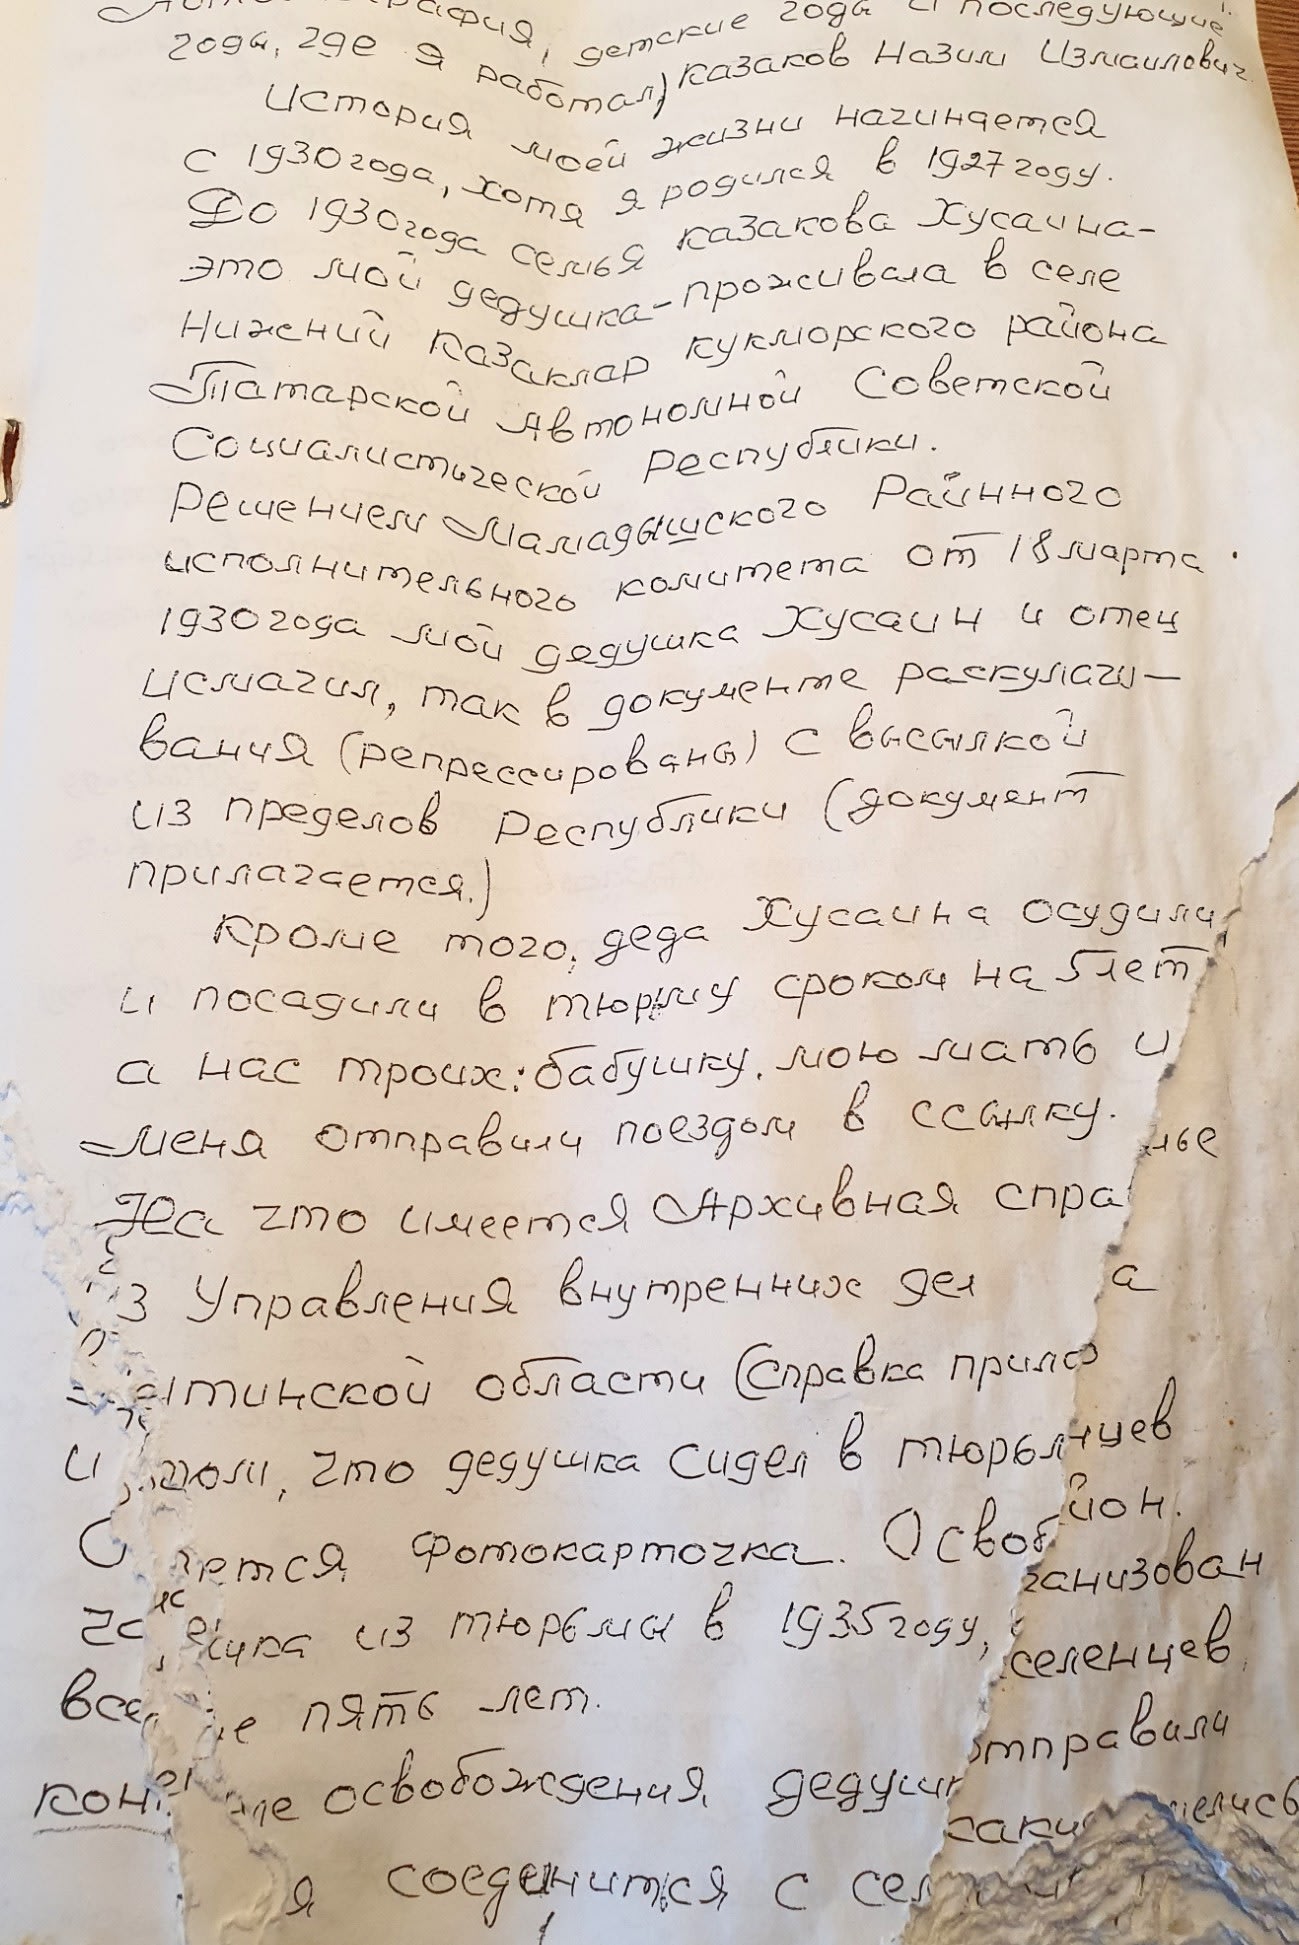 детские года и последующие
года, где я работал) Казаков Назим Измаилович
История моей жизни начинается
с 1930 года, хотя я родился в 1927 году.
До 1930 года семья Казакова Хусаина-
это мой дедушка-проживала в селе
Нижний Казаклар Кукморского района
Татарской Автономной Советской
Социалистической Республики.
Решением Мамадышского Районного
исполнительного комитета от 18 марта
1930 года мой дедушка Хусаин и отец
Исмагил, так в документе раскулачи-
вания (репрессированы) с высылкой
из пределов Республики (документ
прилагается.)
Кроме того, деда Хусаина осудили
и посадили в тюрму сроком на 5 лет
а нас троих: бабушку, мою мать и
меня отправили поездом в ссылку.
На что имеется Архивная спра
з Управления внутренних дел а
тинской области (справка прило
том, что дедушка сидел в тюрьм нцев
ется фотокарточка. Освоб йон.
ганизован
шка из тюрьмы в 1935 году, селенцев
все пять лет.
отправили
ле освобождения дедушк
я соединится с сем